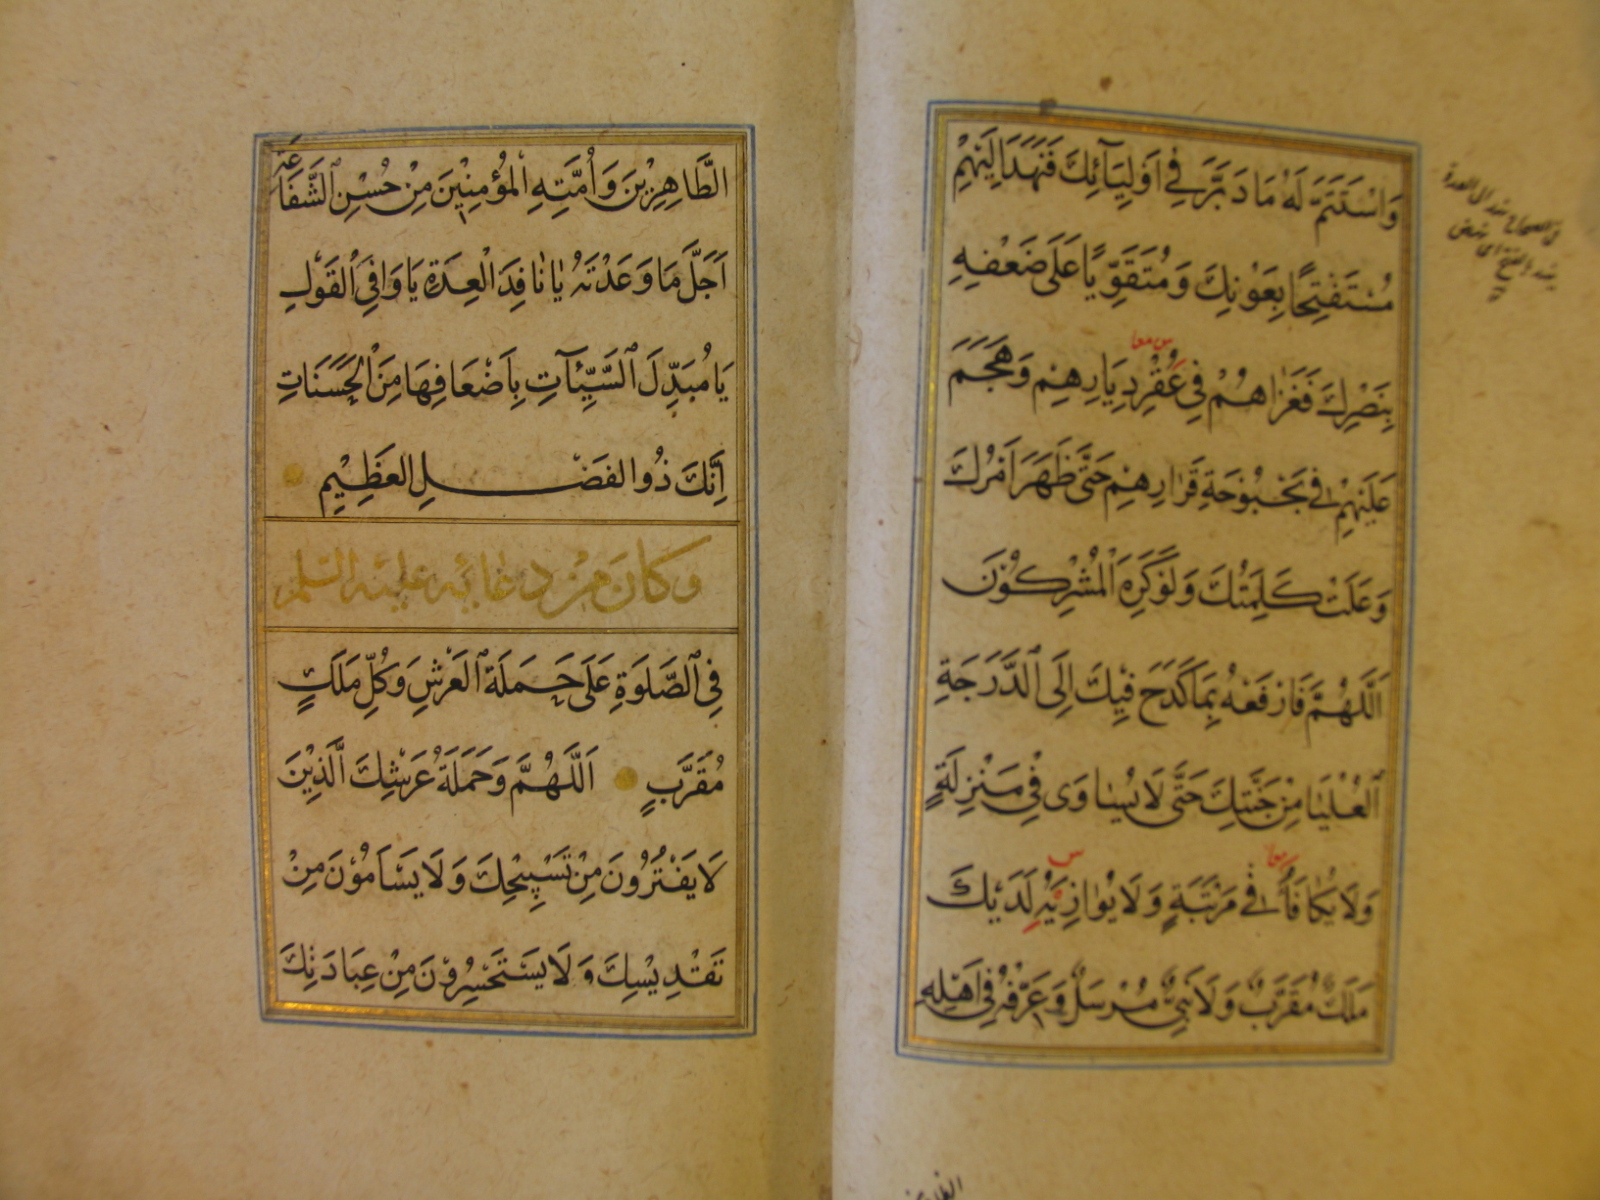 وَاسْتَتَمَّ لَهُ مَا دَبَّرَ فِي اَوْلِيَآئِكَ فَنَهَدَ اِلَيْهِمْ
مُسْتَفْتِحًا بِعَوْنِكَ وَمُتَقَوِّيًا عَلَى ضَعْفِهِ
بِنَصْرِكَ فَغَزَاهُمْ فِي عُقْرِ دِيَارِهِمْ وَهَجَمَ
س معا
عَلَيْهِمْ فِي بُحْبُوحَةِ قَرَارِهِمْ حَتَّى ظَهَرَ اَمْرُكَ
وَعَلَتْ كَلِمَتُكَ وَلَوْ كَرِهَ الْمُشْرِكُونَ
اَللَّهُمَّ فَارْفَعْهُ بِمَا كَدَحَ فِيكَ اِلَى الدَّرَجَةِ
الْعُلْيَا مِنْ جَنَّتِكَ حَتَّى لَا يُسَاوَى فِي مَنْزِلَةٍ
وَلَا يُكَافَأَ فِي مَرْتَبَةٍ وَلَا يُوَازِيَهُ لَدَيْكَ
معا س
مَلَكٌ مُقَرَّبٌ وَلَا نَبِيٌّ مُرْسَلٌ وَعَرِّفْهُ فِي اَهْلِهِ
الطَّاهِرِينَ وَاُمَّتِهِ الْمُؤْمِنِينَ مِنْ حُسْنِ الشَّفَاعَةِ
اَجَلَّ مَا وَعَدْتَهُ يَا نَافِدَ الْعِدَةِ يَا وَافِيَ الْقَوْلِ
يَا مُبَدِّلَ السَّيِّئَاتِ بِاَضْعَافِهَا مِنَ الْحَسَنَاتِ
اِنَّكَ ذُو الفَضْلِ العَظِيمِ
وَكَانَ مِنْ دُعَائِهِ عَلَيْهِ السَّلم
فِي الصَّلوَةِ عَلَى حَمَلَةِ العَرْشِ وَكُلِّ مَلَكٍ
مُقَرَّبٍ اَللَّهُمَّ وَحَمَلَةُ عَرْشِكَ الَّذِينَ
لَا يَفْتُرُونَ مِنْ تَسْبِيحِكَ وَلَا يَسْاَمُونَ مِنْ
تَقْدِيسِكَ وَلَا يَسْتَحْسِرُونَ مِنْ عِبَادَتِكَ